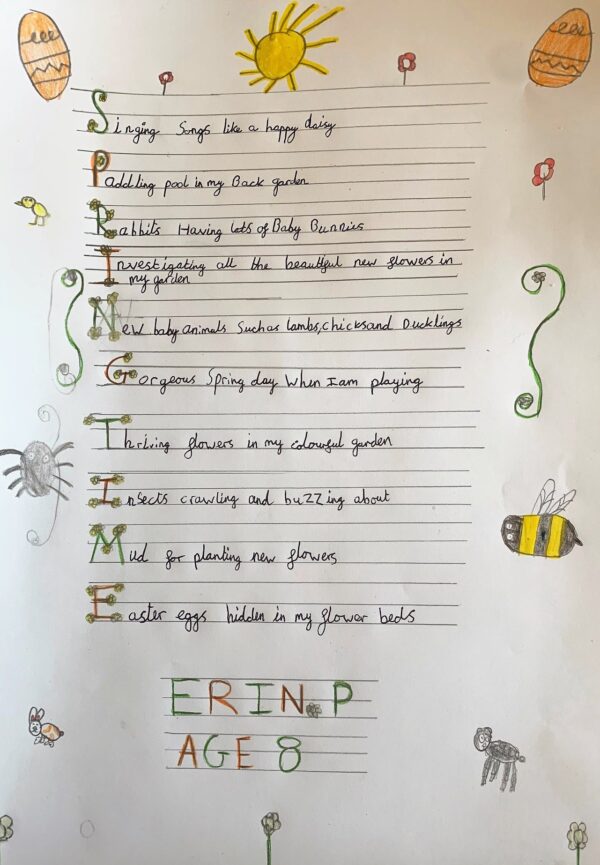 Singing Songs like a happy daisy
Paddling pool in my Back garden
Rabbits Having lots of Baby Bunnies
Investigating all the beautful new flowers in
my garden
New baby animals Such as lambs, chicks and Ducklings
Gorgeous Spring day When I am playing
Thriving flowers in my colourful garden
Insects crawling and buZZing about
Mud for planting new flowers
Easter eggs hidden in my flower beds
ERIN.P
AGE 8